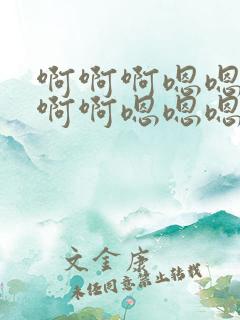 啊啊啊嗯嗯
啊啊嗯嗯嗯
文金康
未经同意禁止转载